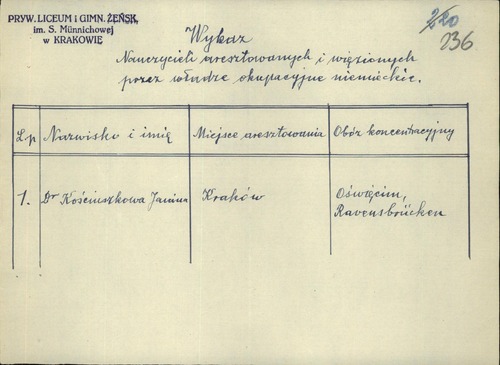 PRYW. LICEUM i GIMN. ŻEŃSK.
im. S. Münnichowej
w KRAKOWIE
220
236
Wykaz
Nauczycieli aresztowanych i więzionych
przez władze okupacyjne niemieckie.
L.p Nazwisko i imię Miejsce aresztowania Obóz koncentracyjny
1. Dr Kościuszkowa Janina Kraków Oświęcim,
Ravensbrücken